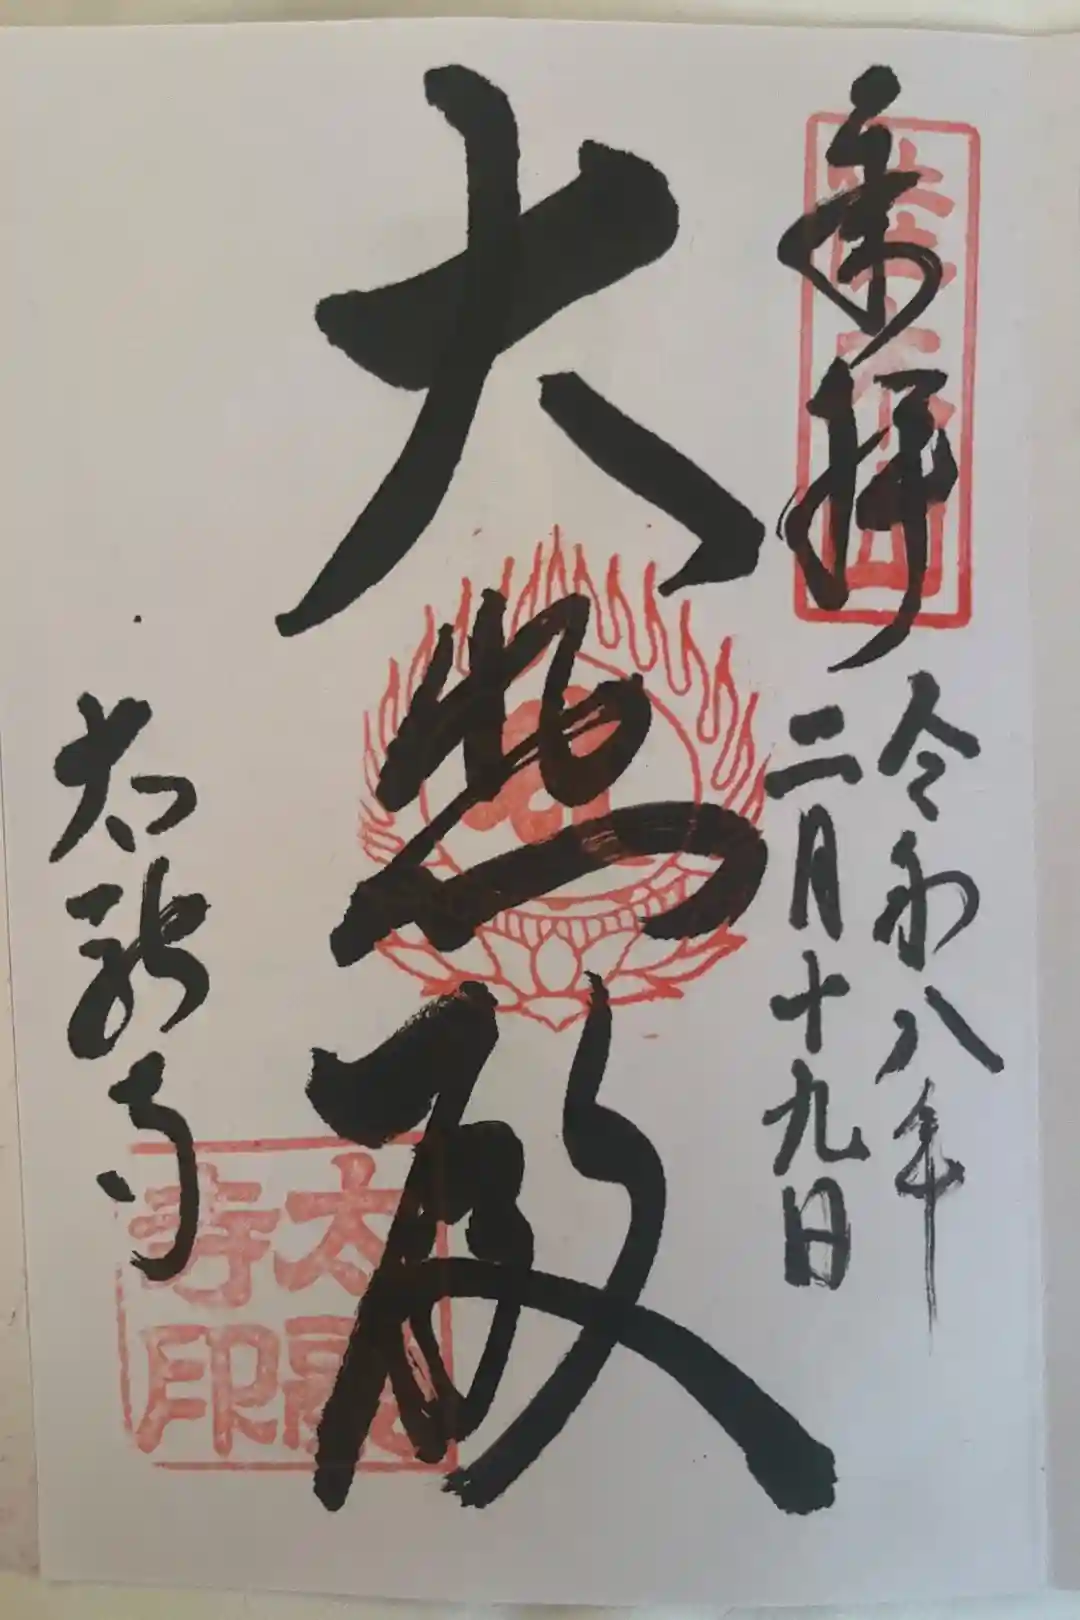 奉拝
令和八年
二月十九日
大悲殿
太融寺
太融寺印